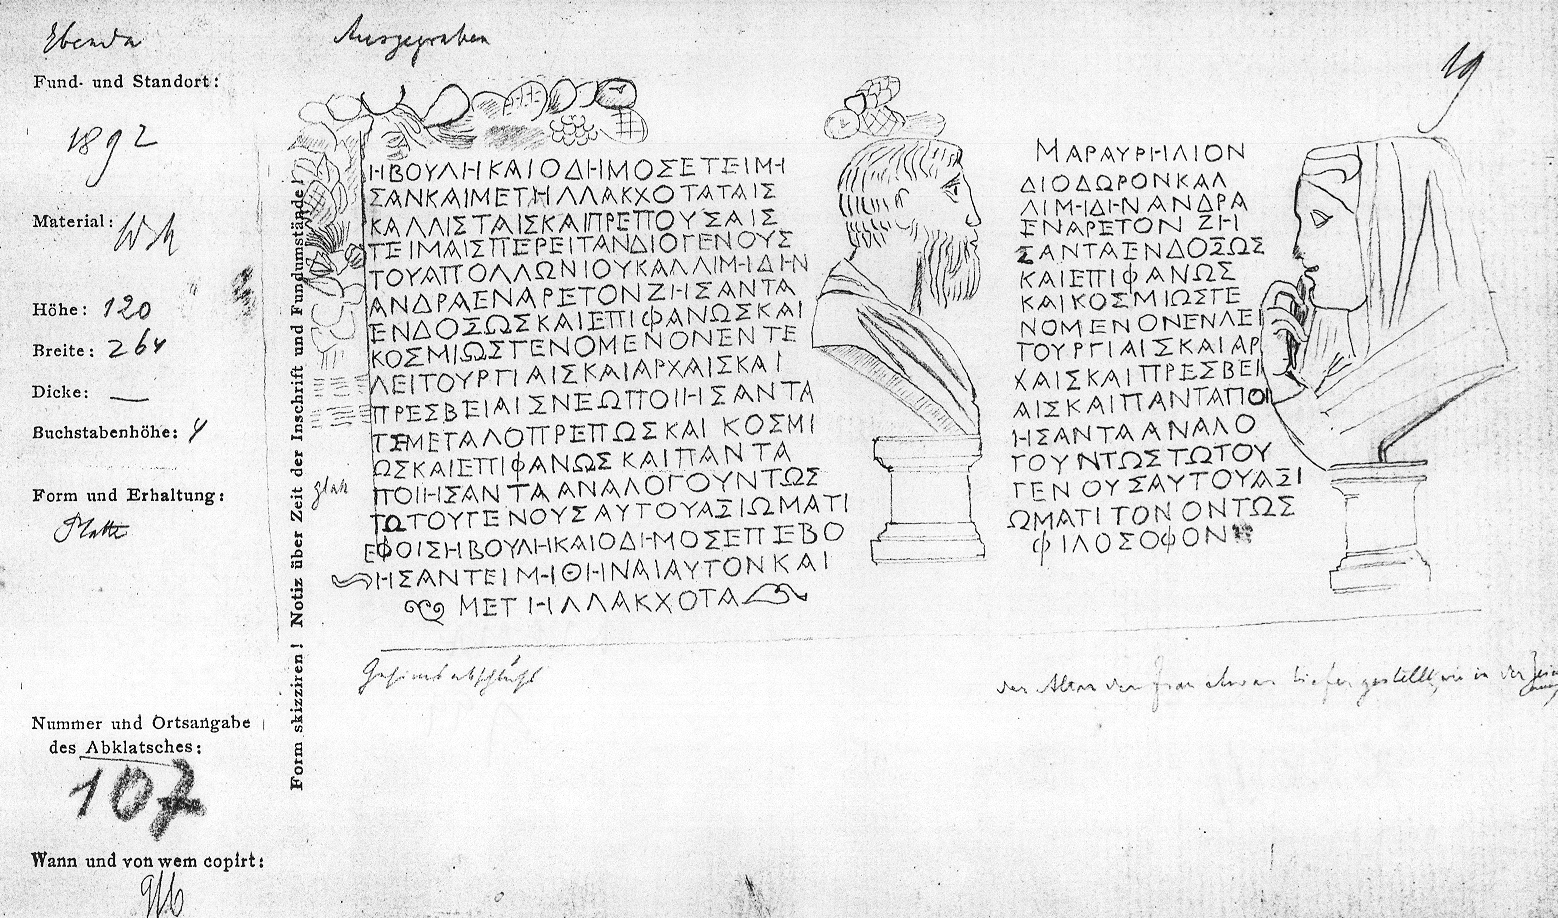 Ebenda
Ausgegraben
19
Fund- und Standort:
1892
Material:
Höhe: 120
Breite: 264
Dicke: —
Buchstabenhöhe: 4
Form und Erhaltung:
Platte
glatt
Nummer und Ortsangabe
des Abklatsches:
107
Wann und von wem copirt:
Form skizziren! Notiz über Zeit der Inschrift und Fundumstände!
ΗΒΟΥΛΗΚΑΙΟΔΗΜΟΣΕΤΕΙΜΗ
ΣΑΝΚΑΙΜΕΤΗΛΛΑΚΧΟΤΑΤΑΙΣ
ΚΑΛΛΙΣΤΑΙΣΚΑΙΠΡΕΠΟΥΣΑΙΣ
ΤΕΙΜΑΙΣΠΕΡΕΙΤΑΝΔΙΟΓΕΝΟΥΣ
ΤΟΥΑΠΟΛΛΩΝΙΟΥΚΑΛΛΙΜΗΔΗΝ
ΑΝΔΡΑΕΝΑΡΕΤΟΝΖΗΣΑΝΤΑ
ΕΝΔΟΣΩΣΚΑΙΕΠΙΦΑΝΩΣΚΑΙ
ΚΟΣΜΙΩΣΓΕΝΟΜΕΝΟΝΕΝΤΕ
ΛΕΙΤΟΥΡΓΙΑΙΣΚΑΙΑΡΧΑΙΣΚΑΙ
ΠΡΕΣΒΕΙΑΙΣΝΕΩΠΟΙΗΣΑΝΤΑ
ΤΕΜΕΓΑΛΟΠΡΕΠΩΣΚΑΙ ΚΟΣΜΙ
ΩΣΚΑΙΕΠΙΦΑΝΩΣ ΚΑΙΠΑΝΤΑ
ΠΟΙΗΣΑΝΤΑΑΝΑΛΟΓΟΥΝΤΩΣ
ΤΩΤΟΥΓΕΝΟΥΣΑΥΤΟΥΑΣΙΩΜΑΤΙ
ΕΦΟΙΣΗΒΟΥΛΗΚΑΙΟΔΗΜΟΣΕΠΕΒΟ
ΗΣΑΝΤΕΙΜΗΘΗΝΑΙΑΥΤΟΝΚΑΙ
ΜΕΤΗΛΛΑΚΧΟΤΑ
ΜΑΡΑΥΡΗΛΙΟΝ
ΔΙΟΔΩΡΟΝΚΑΛ
ΛΙΜΗΔΗΝΑΝΔΡΑ
ΕΝΑΡΕΤΟΝ ΖΗ
ΣΑΝΤΑΕΝΔΟΣΩΣ
ΚΑΙΕΠΙΦΑΝΩΣ
ΚΑΙΚΟΣΜΙΩΣΓΕ
ΝΟΜΕΝΟΝΕΝΛΕΙ
ΤΟΥΡΓΙΑΙΣΚΑΙΑΡ
ΧΑΙΣΚΑΙΠΡΕΣΒΕΙ
ΑΙΣΚΑΙΠΑΝΤΑΠΟΙ
ΗΣΑΝΤΑΑΝΑΛΟ
ΓΟΥΝΤΩΣΤΩΤΟΥ
ΓΕΝΟΥΣΑΥΤΟΥΑΣΙ
ΩΜΑΤΙΤΟΝΟΝΤΩΣ
ΦΙΛΟΣΟΦΟΝ
Gesimsabschluß
der Altar der Frau etwas tiefer gestellt, wie in der